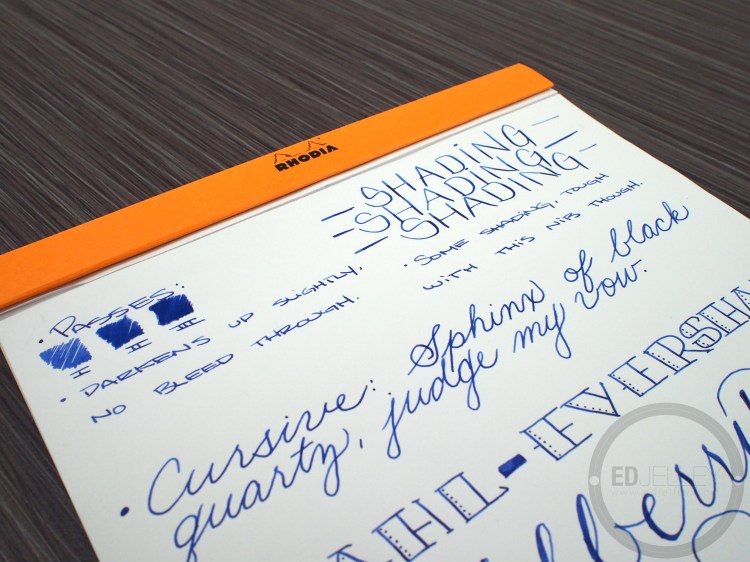 RHODIA
SHADING
SHADING
SHADING
• SOME SHADING, TOUGH
WITH THIS NIB THOUGH.
• PASSES:
I II III
• DARKENS UP SLIGHTLY,
NO BLEED THROUGH.
• Cursive: Sphinx of black
quartz, judge my vow.
AHL-EVERSHA
ED JELLEY